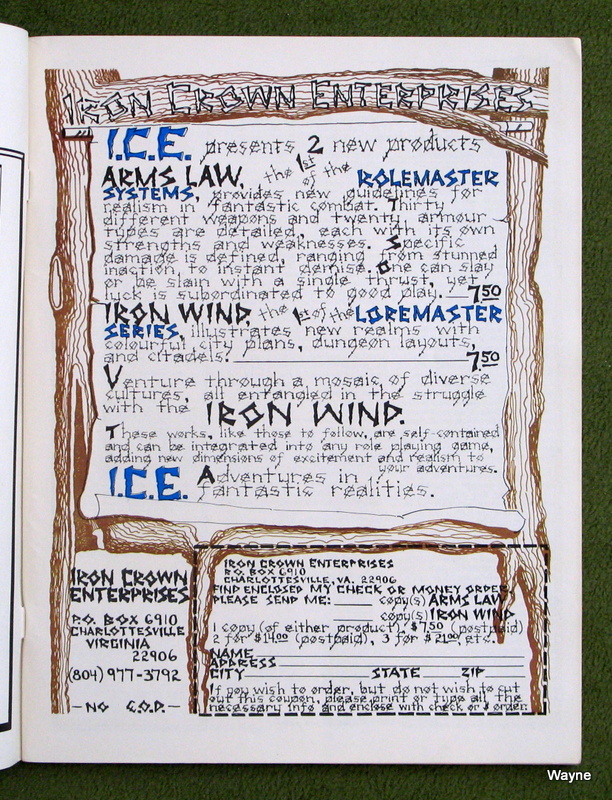 IRON CROWN ENTERPRISES
I.C.E. presents 2 new products
ARMS LAW, the 1st of the ROLEMASTER
SYSTEMS, provides new guidelines for
realism in fantastic combat. Thirty
different weapons and twenty armour
types are detailed, each with its own
strengths and weaknesses. Specific
damage is defined, ranging from stunned
inaction, to instant demise. One can slay
or be slain with a single thrust, yet
luck is subordinated to good play. 7.50
IRON WIND, the 1st of the LOREMASTER
SERIES, illustrates new realms with
colourful city plans, dungeon layouts,
and citadels. 7.50
Venture through a mosaic of diverse
cultures, all entangled in the struggle
with the IRON WIND.
These works, like those to follow, are self-contained
and can be integrated into any role playing game,
adding new dimensions of excitement and realism to
your adventures.
I.C.E. Adventures in
fantastic realities.
IRON CROWN
ENTERPRISES
P.O. BOX 6910
CHARLOTTESVILLE
VIRGINIA
22906
(804) 977-3792
-NO C.O.D.-
IRON CROWN ENTERPRISES
P.O. BOX 6910
CHARLOTTESVILLE, VA. 22906
FIND ENCLOSED MY CHECK OR MONEY ORDER,
PLEASE SEND ME: copy(s) ARMS LAW
copy(s) IRON WIND
1 copy (of either product), $7.50 (postpaid)
2 for $14.00 (postpaid), 3 for $21.00, etc.
NAME
ADDRESS
CITY STATE ZIP
If you wish to order, but do not wish to cut
out this coupon, please print or type all the
necessary info and enclose with check or $ order.
Wayne